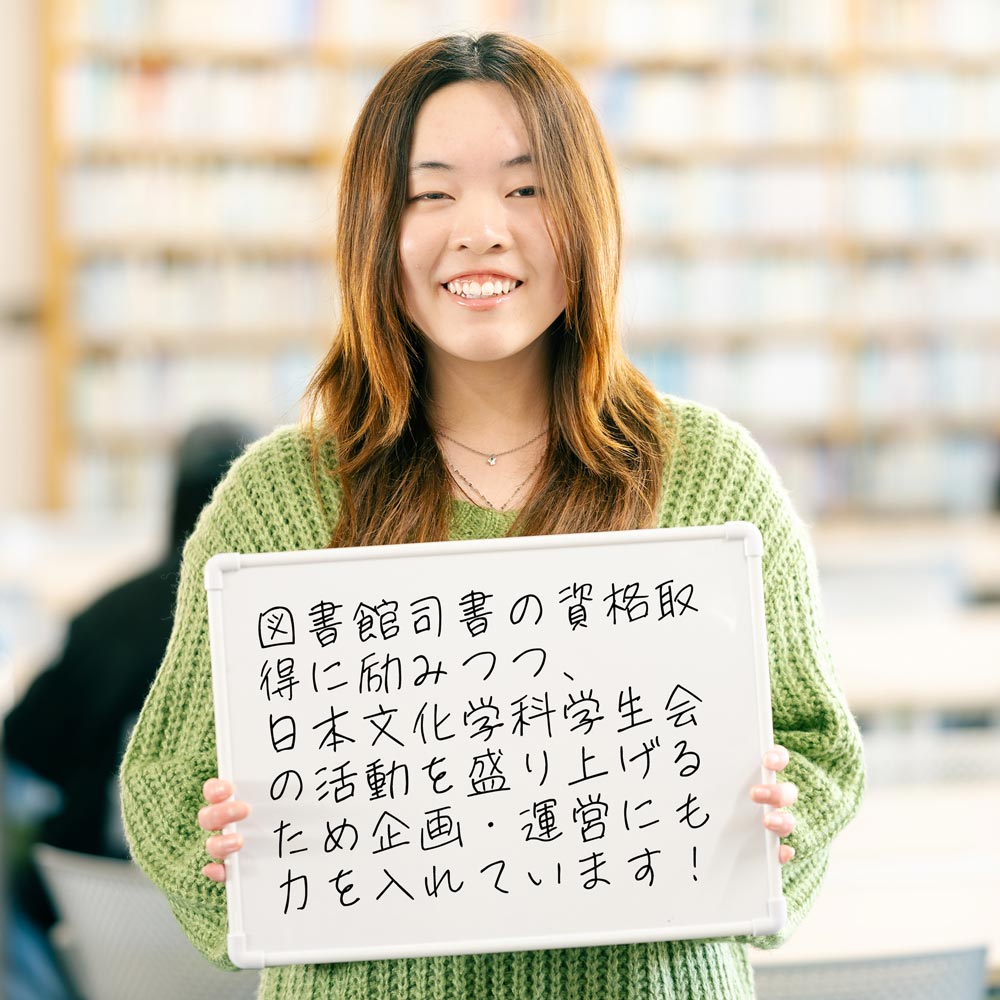 図書館司書の資格取
得に励みつつ、
日本文化学科学生会
の活動を盛り上げる
ため企画・運営にも
力を入れています！